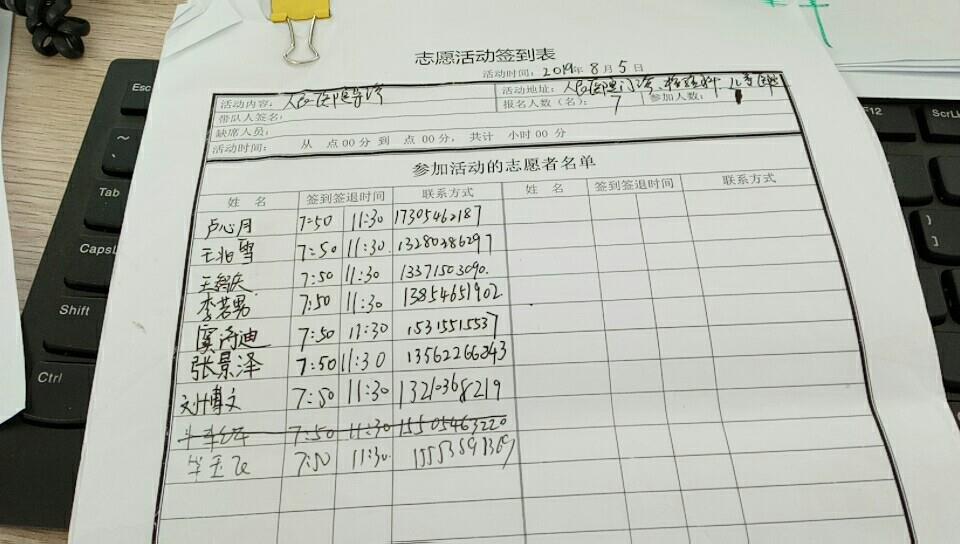 志愿活动签到表
活动时间：2019年 8月 5日
活动内容：人民医院导诊 活动地址：人民医院门诊、
带队人签名： 报名人数（名）：7 参加人数：
缺席人员：
活动时间： 从 点00分 到 点00分， 共计 小时00分
参加活动的志愿者名单
姓 名 签到签退时间 联系方式 姓 名 签到签退时间 联系方式
卢心月 7:50 11:30 17305462187
7:50 11:30 13280386297
7:50 11:30 13371503090
李若男 7:50 11:30 13854651902
7:50 11:30 15315515537
张景泽 7:50 11:30 13562266843
刘博文 7:50 11:30 13210368219
7:50 11:30 15505463220
7:50 11:30
Esc
~
`
Tab
Caps
Shift
Ctrl
F12
ScrLk
}
]